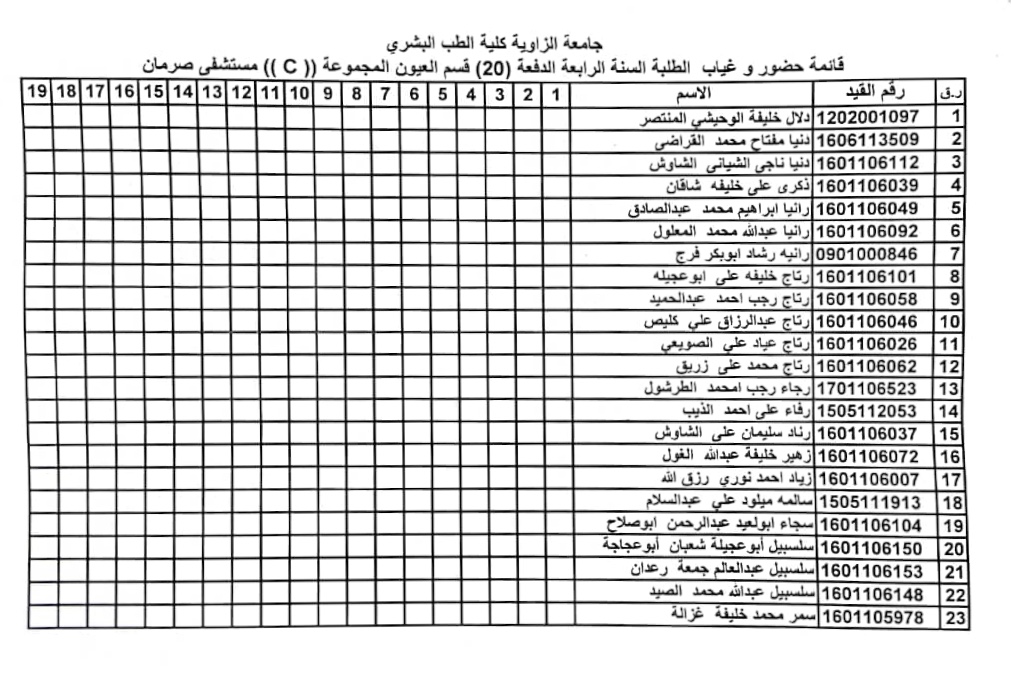 جامعة الزاوية كلية الطب البشري
قائمة حضور و غياب الطلبة السنة الرابعة الدفعة (20) قسم العيون المجموعة (( C )) مستشفى صرمان
ر.ق رقم القيد الاسم 1 2 3 4 5 6 7 8 9 10 11 12 13 14 15 16 17 18 19
1 1202001097 دلال خليفة الوحيشي المنتصر
2 1606113509 دنيا مفتاح محمد القراضى
3 1601106112 دنيا ناجي الشيانى الشاوش
4 1601106039 ذكرى على خليفه شاقان
5 1601106049 رانيا ابراهيم محمد عبدالصادق
6 1601106092 رانيا عبدالله محمد المعلول
7 0901000846 رانيه رشاد ابوبكر فرج
8 1601106101 رتاج خليفه على ابوعجيله
9 1601106058 رتاج رجب احمد عبدالحميد
10 1601106046 رتاج عبدالرزاق علي كليص
11 1601106026 رتاج عياد علي الصويعي
12 1601106062 رتاج محمد على زريق
13 1701106523 رجاء رجب امحمد الطرشول
14 1505112053 رفاء على احمد الذيب
15 1601106037 رناد سليمان على الشاوش
16 1601106072 زهير خليفة عبدالله الغول
17 1601106007 زياد احمد نوري رزق الله
18 1505111913 سالمه ميلود علي عبدالسلام
19 1601106104 سجاء ابولعيد عبدالرحمن ابوصلاح
20 1601106150 سلسبيل أبوعجيلة شعبان أبوعجاجة
21 1601106153 سلسبيل عبدالعالم جمعة رعدان
22 1601106148 سلسبيل عبدالله محمد الصيد
23 1601105978 سمر محمد خليفة غزالة